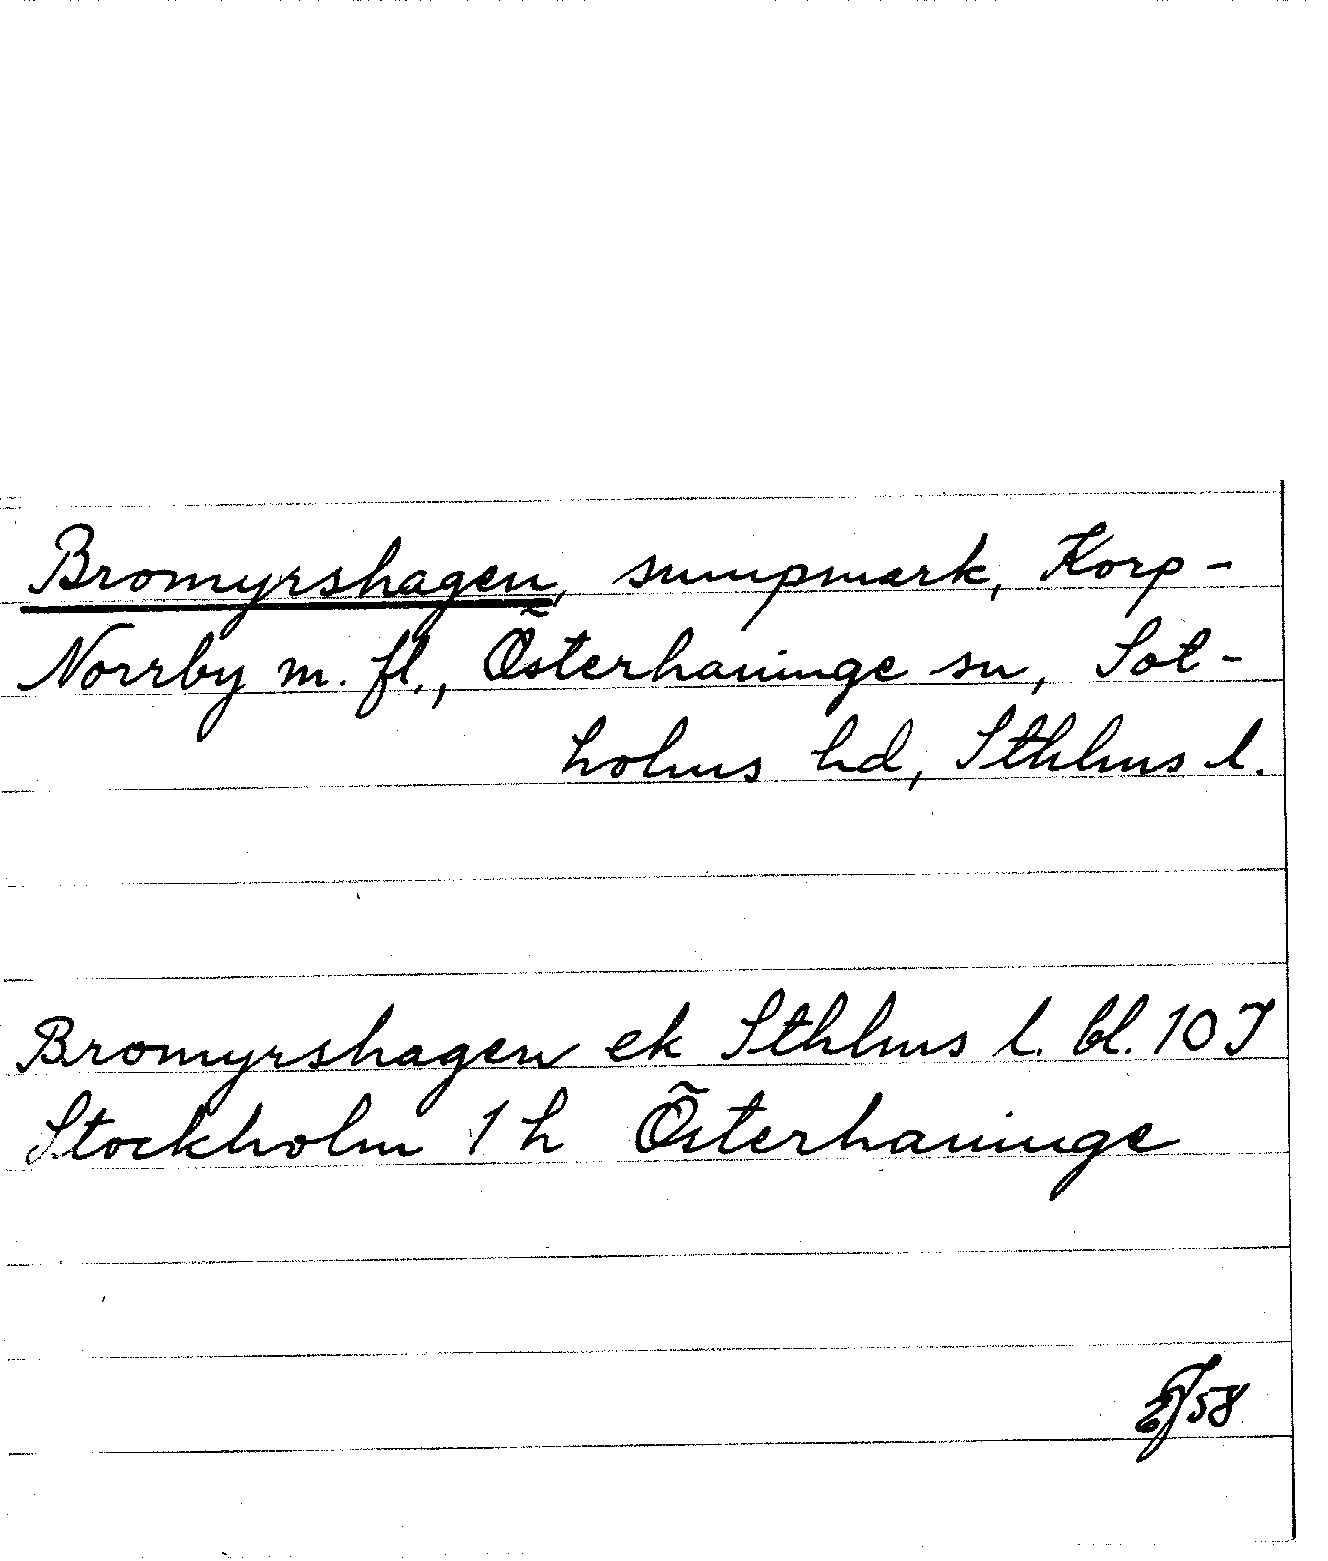 Bromyrshagen, sumpmark, Korp-
Norrby m. fl., Österhaninge sn, Sot-
holms hd, Sthlms l.
Bromyrshagen ek Sthlms l. bl. 10 I
Stockholm 1 h Österhaninge
58